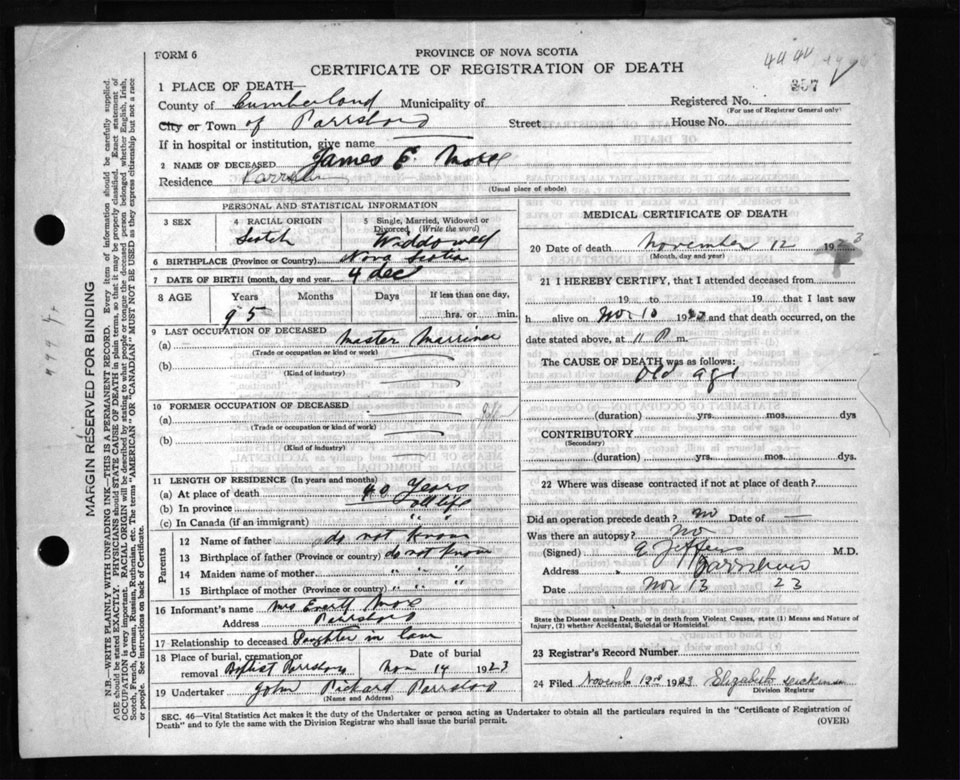 FORM 6
PROVINCE OF NOVA SCOTIA
CERTIFICATE OF REGISTRATION OF DEATH
1 PLACE OF DEATH
County of Cumberland Municipality of
Registered No. 257
(For use of Registrar General only)
City or Town of Parrsboro Street House No.
If in hospital or institution, give name
2 NAME OF DECEASED James E.
Residence
(Usual place of abode)
PERSONAL AND STATISTICAL INFORMATION
3 SEX
4 RACIAL ORIGIN Scotch
5 Single, Married, Widowed or Divorced (Write the word) Widdowed
6 BIRTHPLACE (Province or Country) Nova Scotia
7 DATE OF BIRTH (month, day and year) 4 dec
8 AGE Years Months Days If less than one day,
95 hrs. or min.
9 LAST OCCUPATION OF DECEASED
(a) Master Marriner
(Trade or occupation or kind of work)
(b)
(Kind of industry)
10 FORMER OCCUPATION OF DECEASED
(a)
(Trade or occupation or kind of work)
(b)
(Kind of industry)
11 LENGTH OF RESIDENCE (In years and months)
(a) At place of death 40 Years
(b) In province all life
(c) In Canada (if an immigrant) " "
Parents
12 Name of father do not know
13 Birthplace of father (Province or country) do not know
14 Maiden name of mother " " "
15 Birthplace of mother (Province or country) " " "
16 Informant's name Mrs
Address Parrsboro
17 Relationship to deceased Daughter in law
18 Place of burial, cremation or removal Baptist Parrsboro
Date of burial Nov 14 1923
19 Undertaker John Pickard Parrsboro
(Name and Address)
MEDICAL CERTIFICATE OF DEATH
20 Date of death November 12 1923
(Month, day and year)
21 I HEREBY CERTIFY, that I attended deceased from
19 to 19 that I last saw
h alive on Nov 10 1923 and that death occurred, on
date stated above, at 11 P m.
The CAUSE OF DEATH was as follows:
Old age
(duration) yrs. mos. dys
CONTRIBUTORY
(Secondary)
(duration) yrs. mos. dys.
22 Where was disease contracted if not at place of death?
Did an operation precede death? no Date of —
Was there an autopsy? no
(Signed) E Jeffers M.D.
Address Parrsboro
Date Nov 13 23
State the Disease causing Death, or in death from Violent Causes, state (1) Means and Nature of Injury, (2) whether Accidental, Suicidal or Homicidal.
23 Registrar's Record Number
24 Filed 1923 Elizabeth
Division Registrar
SEC. 46—Vital Statistics Act makes it the duty of the Undertaker or person acting as Undertaker to obtain all the particulars required in the "Certificate of Registration of
Death" and to fyle the same with the Division Registrar who shall issue the burial permit.
(OVER)
MARGIN RESERVED FOR BINDING
N.B.—WRITE PLAINLY WITH UNFADING INK—THIS IS A PERMANENT RECORD. Every item of information should be carefully supplied.
AGE should be stated EXACTLY. PHYSICIANS should STATE CAUSE OF DEATH in plain terms, so that it may be properly classified. Exact statement of
OCCUPATION is very important. RACIAL ORIGIN will be described by stating to what people or tongue the deceased person belonged whether English, Irish,
Scotch, French, German, Russian, Ruthenian, etc. The terms "AMERICAN" OR "CANADIAN" MUST NOT BE USED as they express citizenship but not a race
or people. See instructions on back of Certificate.